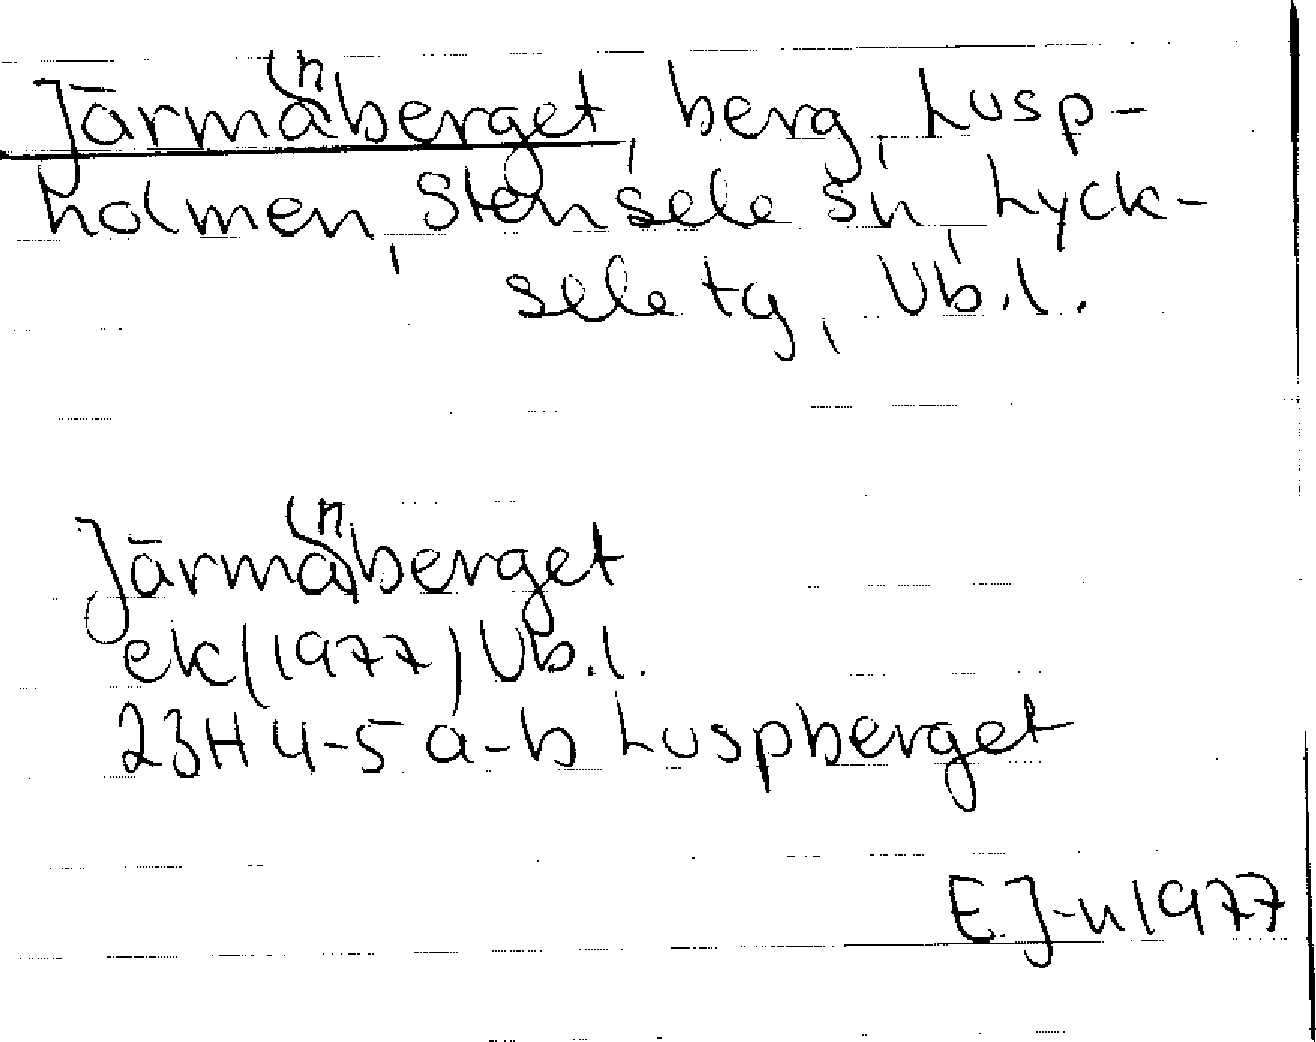 Järmanberget, berg, Lusp-
holmen, Stensele sn, Lyck-
sele tg, Vb.l.
Järmanberget
ek (1977) Vb.l.
23H 4-5 a-b Luspberget
E.J-n 1977